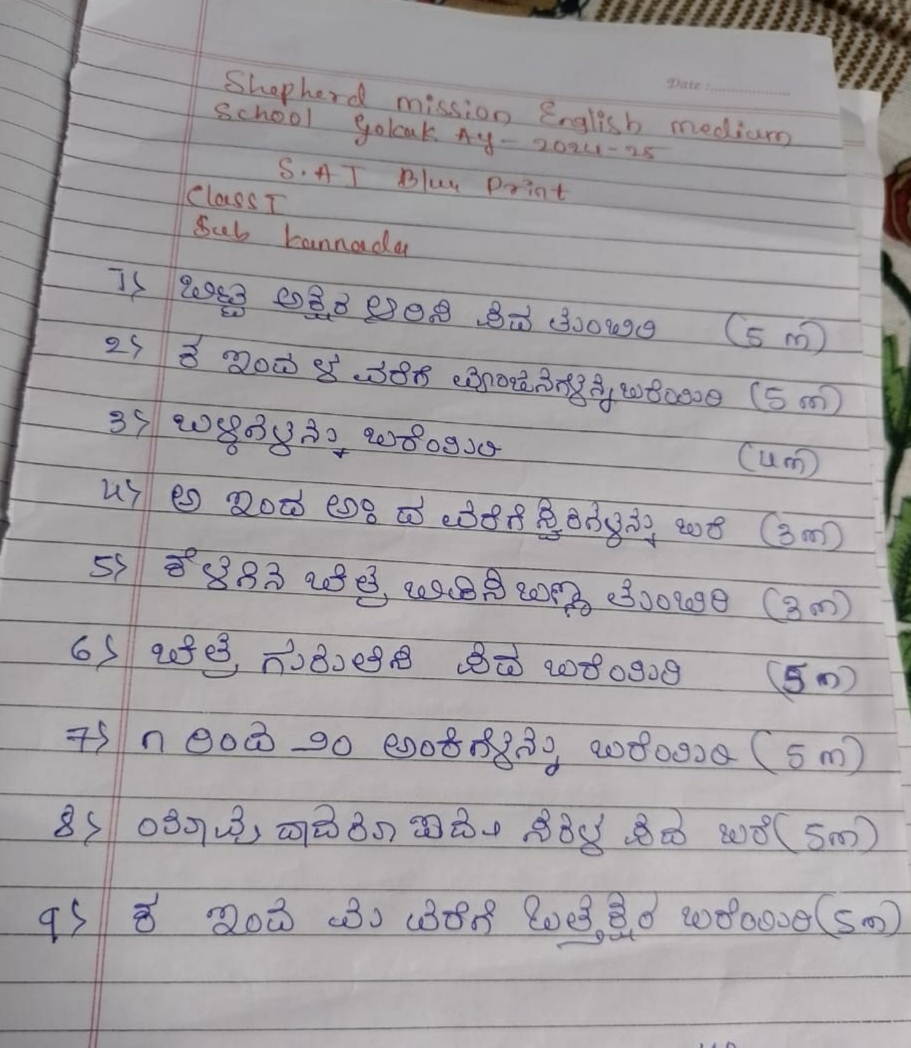 Date :
Shepherd mission English medium
School Gokak Ay - 2024-25
S.A I Blue Print
Class I
Sub kannada
1> ಬಿಟ್ಟ ಅಕ್ಷರ ಪದ ತುಂಬಿರಿ (5 ന)
2> ಕ ಇಂದ ಳ ವರೆಗೆ ವ್ಯಂಜನಗಳನ್ನು ಬರೆಯಿರಿ (5 ന)
3> ಬರೆಯಿರಿ (4 ന)
4> ಅ ಇಂದ ಅಃ ದ ವರೆಗೆ ಸ್ವರಗಳನ್ನು ಬರೆ (3 ന)
5> ಕೆಳಗಿನ ಚಿತ್ರ ಬಣ್ಣ ತುಂಬಿರಿ (3 ന)
6> ಚಿತ್ರ ಗುರುತಿಸಿ ಪದ ಬರೆಯಿರಿ (5 ന)
7> ೧ ರಿಂದ ೨೦ ಅಂಕಿಗಳನ್ನು ಬರೆಯಿರಿ (5 ന)
8> ಪದ ಬರೆ (5 ന)
9> ಕ ಇಂದ ಮ ವರೆಗೆ ಒತ್ತಕ್ಷರ ಬರೆಯಿರಿ (5 ന)